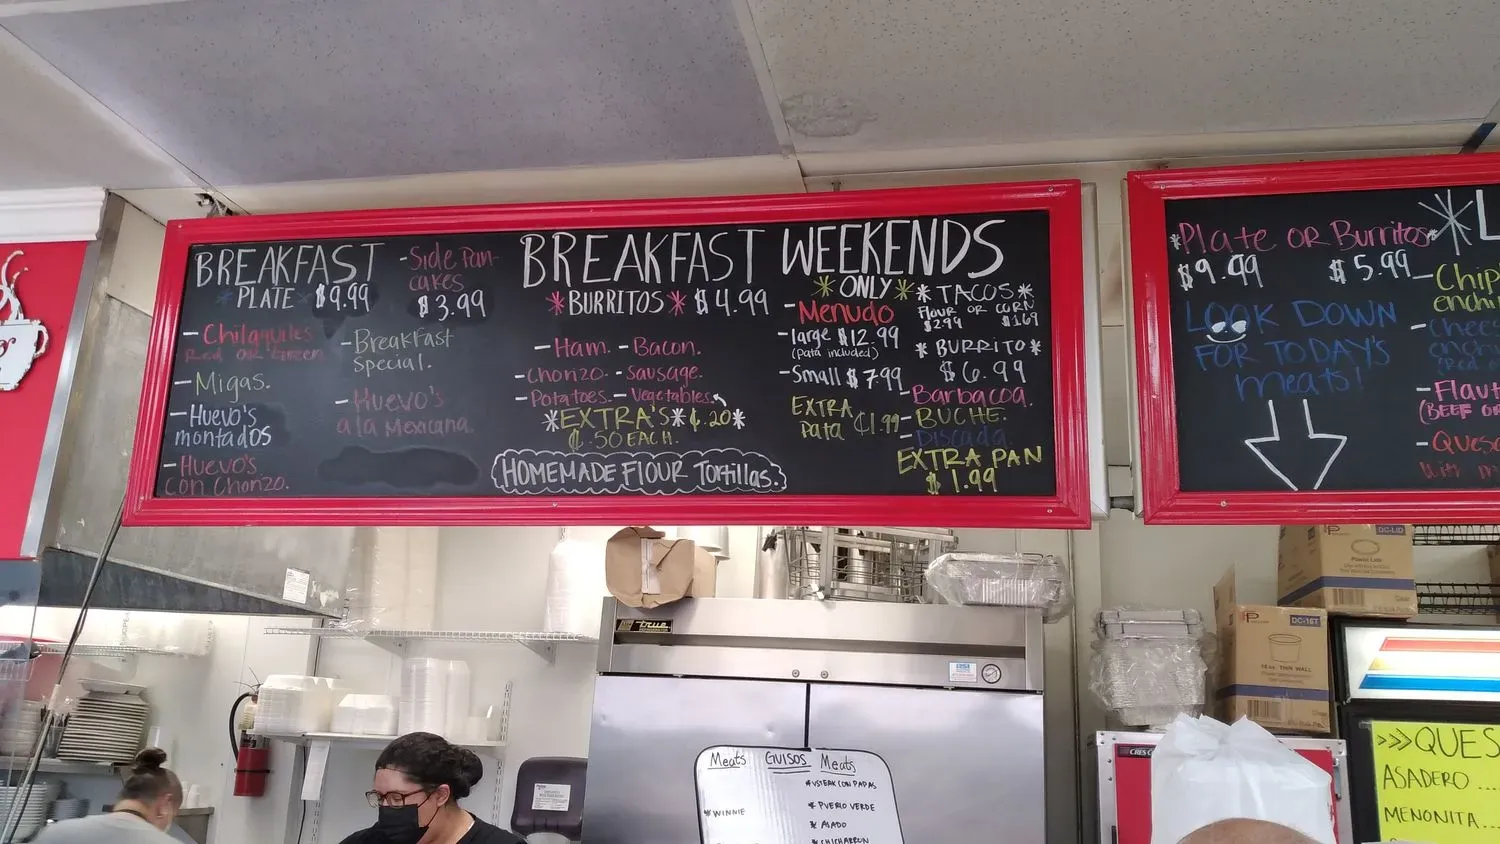 BREAKFAST
PLATE $9.99
- Chilaquiles
Red OR Green
- Migas.
- Huevo's
montados
- Huevo's
con Chorizo.
- Side Pan-
cakes
$3.99
- Breakfast
Special.
- Huevo's
a la Mexicana.
BREAKFAST
*BURRITOS* $4.99
- Ham. - Bacon.
- Chorizo. - Sausage.
- Potatoes. - Vegetables.
*EXTRA'S* ¢.20*
¢.50 EACH.
HOMEMADE FlOUR Tortillas.
WEEKENDS
*ONLY*
- Menudo
- large $12.99
(Pata included)
- Small $7.99
EXTRA
Pata ¢1.99
* TACOS *
FlOUR OR CORN
$2.99 $1.69
* BURRITO *
$6.99
- Barbacoa.
- BUCHE.
- Discada.
EXTRA PAN
$1.99
*Plate OR Burritos*
$9.99 $5.99
LOOK DOWN
FOR TODAY'S
meats!
- Chip
enchi
- Chees
enchi
- Flaut
(BEEF OR
- Ques
true
Meats GUISOS Meats
* WINNIE
* STEAK CON PAPAS
* PUERCO VERDE
* ASADO
* CHICHARRON
DC-LID
DC-16T
16 oz. THIN WALL
>>>QUES
ASADERO ....
MENONITA...